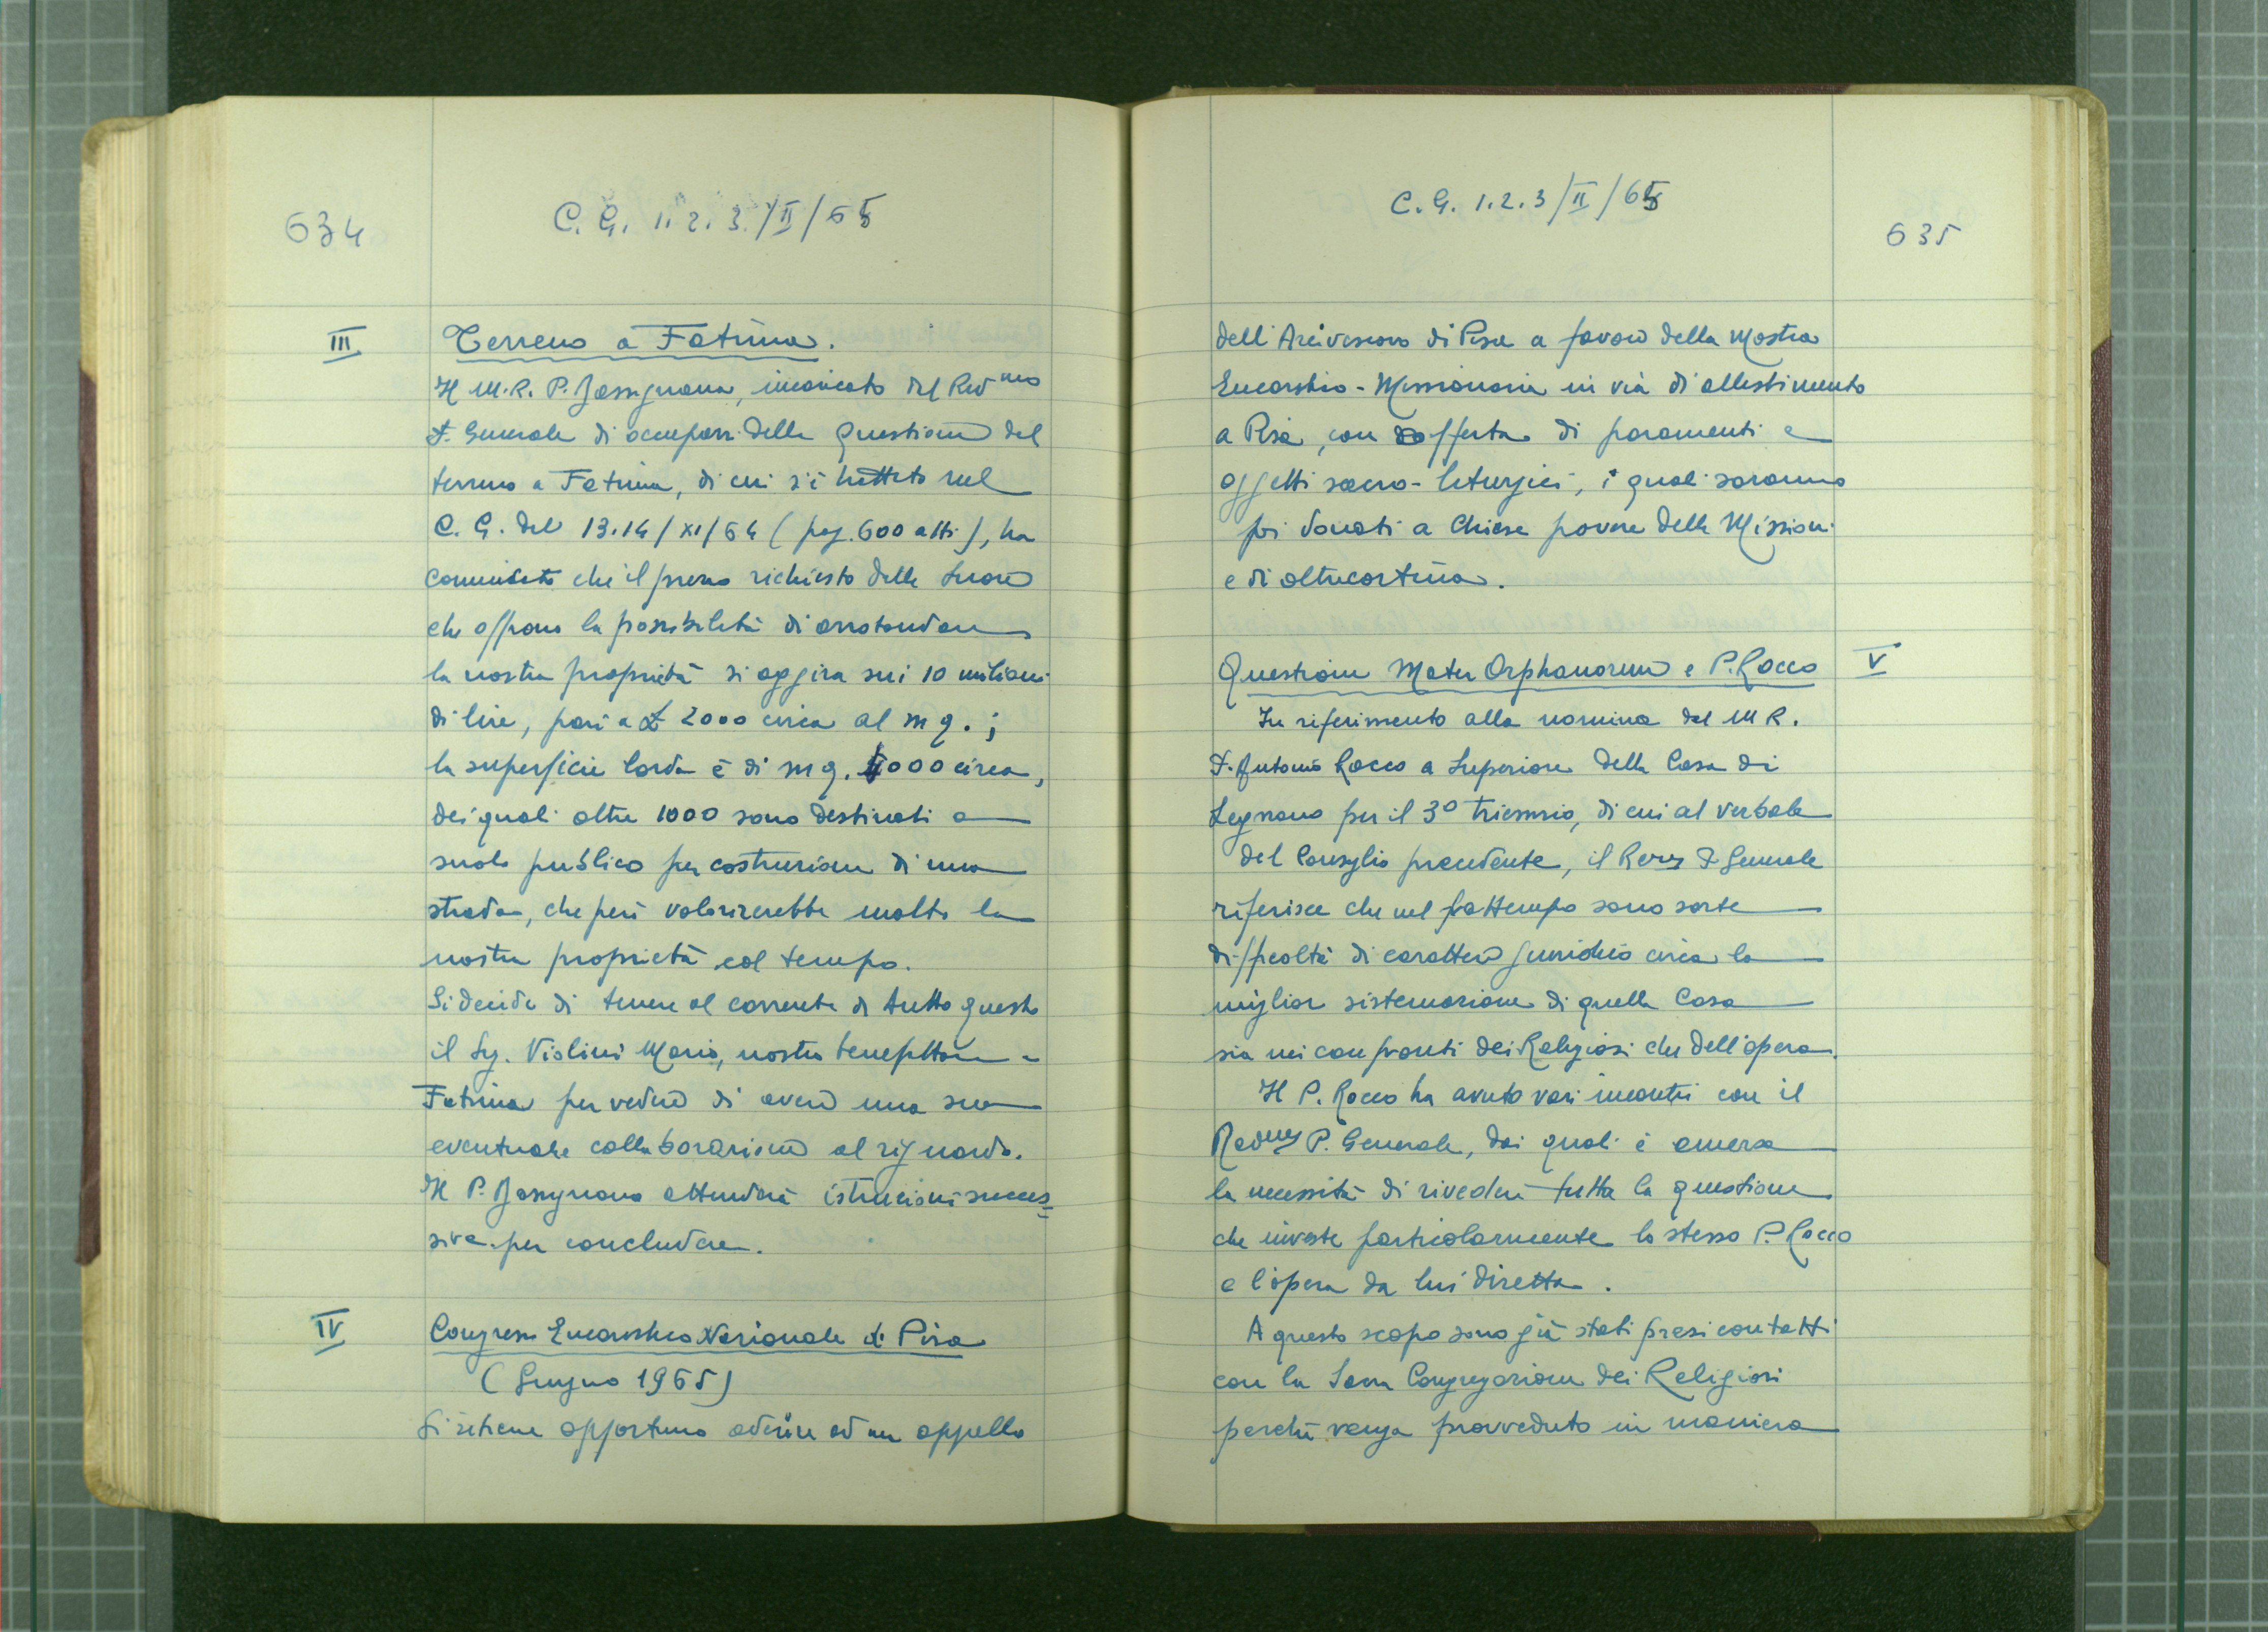 634
C. G. 1. 2. 3./II/65
III
Terreno a Fatima.
Il M.R. P. Bassignana, incaricato dal Rev.mo
P. Generale di occuparsi della questione del
terreno a Fatima, di cui s'è trattato nel
C. G. del 13.14/XI/64 (pag. 600 atti), ha
comunicato che il prezzo richiesto dalle Suore
che offrono la possibilità di arrotondare
la nostra proprietà si aggira sui 10 milioni
di lire, pari a £ 2000 circa al mq.;
la superficie lorda è di mq. 5000 circa,
dei quali oltre 1000 sono destinati a
suolo pubblico per costruzione di una
strada, che però valorizzerebbe molto la
nostra proprietà col tempo.
Si decide di tenere al corrente di tutto questo
il Sig. Violini Mario, nostro benefattore a
Fatima per vedere di avere una sua
eventuale collaborazione al riguardo.
Il P. Bassignana attenderà istruzioni succes=
sive per concludere.
IV
Congresso Eucaristico Nazionale di Pisa
(Giugno 1965)
Si ritiene opportuno aderire ad un appello
C. G. 1.2.3/II/65
635
dell'Arcivescovo di Pisa a favore della Mostra
Eucaristico-Missionaria in via di allestimento
a Pisa, con offerta di paramenti e
oggetti sacro-liturgici, i quali saranno
poi donati a Chiese povere delle Missioni
e di oltrecortina.
V
Questione Mater Orphanorum e P. Rocco
In riferimento alla nomina del M R.
P. Antonio Rocco a Superiore della Casa di
Legnano per il 3° triennio, di cui al verbale
del Consiglio precedente, il Rev.mo P. Generale
riferisce che nel frattempo sono sorte
difficoltà di carattere giuridico circa la
miglior sistemazione di quella Casa
sia nei confronti dei Religiosi che dell'opera.
Il P. Rocco ha avuto vari incontri con il
Rev.mo P. Generale, dai quali è emersa
la necessità di rivedere tutta la questione
che investe particolarmente lo stesso P. Rocco
e l'opera da lui diretta.
A questo scopo sono già stati presi contatti
con la Sacra Congregazione dei Religiosi
perché venga provveduto in maniera